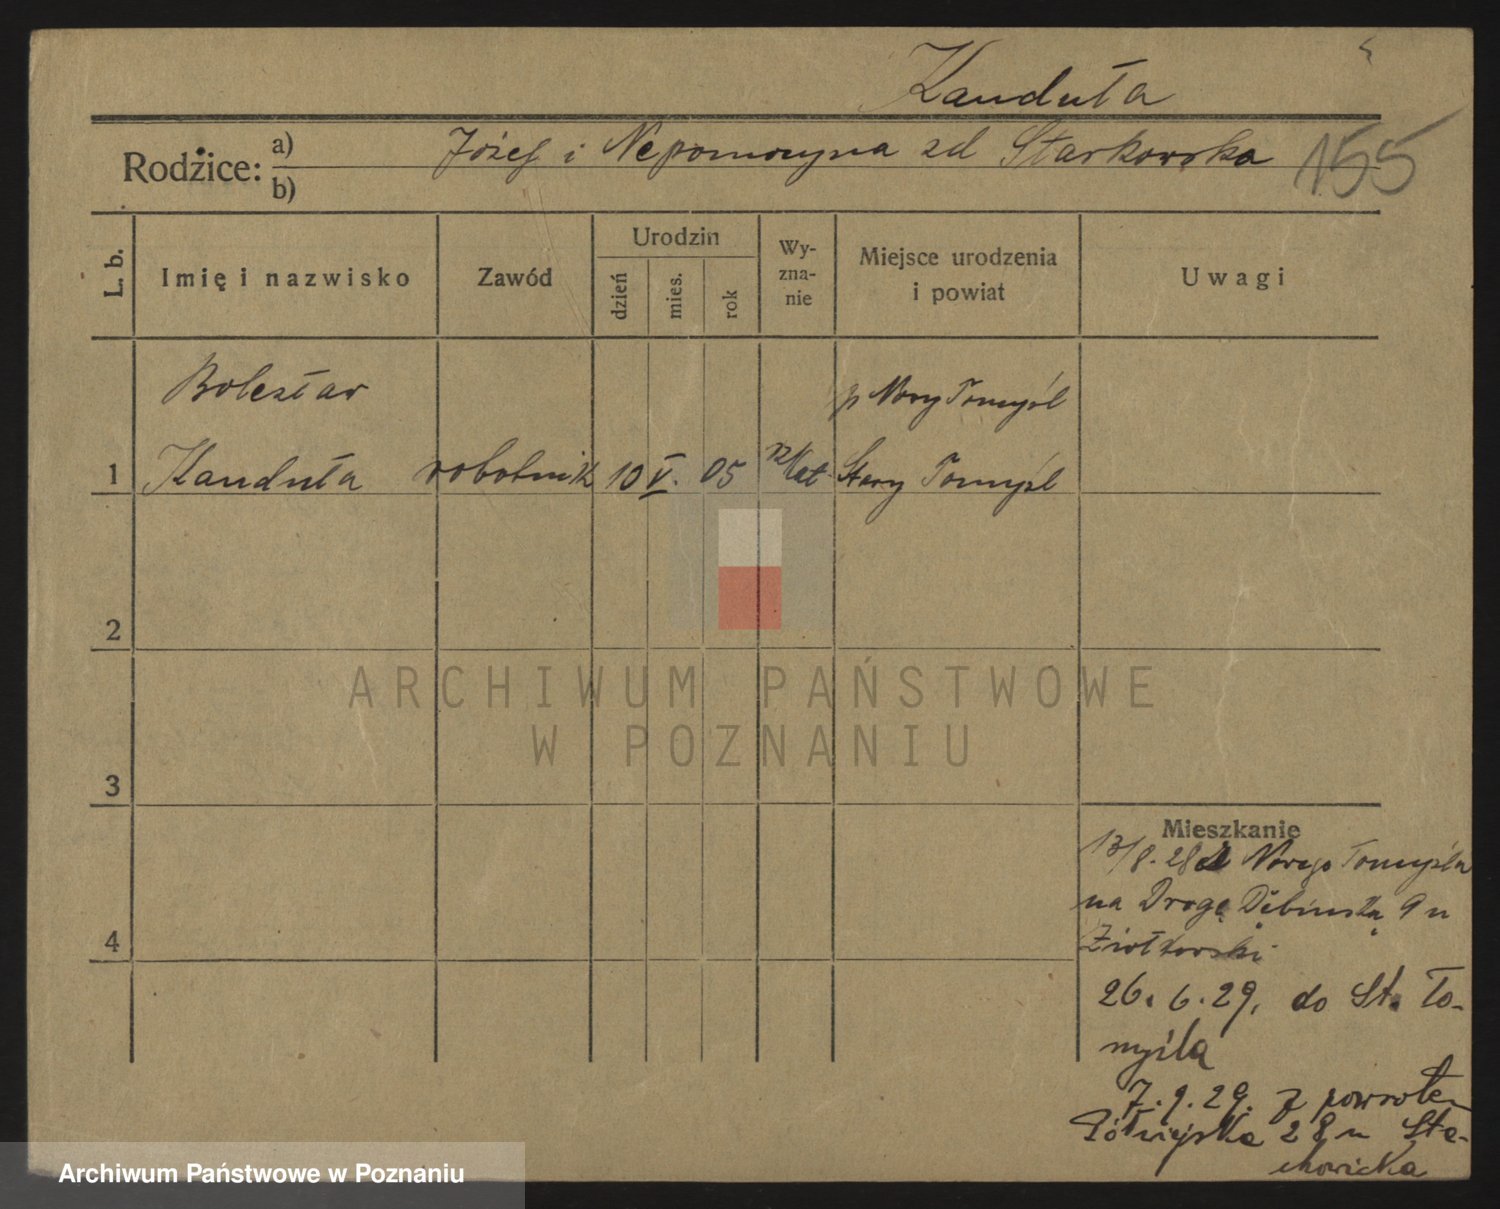 Kanduła
Rodzice: a) Józef i Nepomucyna zd Starkowska
b)
155
L. b.
Imię i nazwisko
Zawód
Urodzin
dzień
mies.
rok
Wy-
zna-
nie
Miejsce urodzenia
i powiat
Uwagi
Bolesław
p Nowy Tomyśl
1 Kanduła robotnik 10 V. 05 rz/kat Stary Tomyśl
2
3
4
ARCHIWUM PAŃSTWOWE
W POZNANIU
Mieszkanie
13/8.28 z Nowego Tomyśla
na Drogę Dębińską 9 u
Ziołkowski
26.6.29. do St. To-
myśla
7.9.29. z powrotem
Półwiejska 28 u Sta-
chowicka
Archiwum Państwowe w Poznaniu